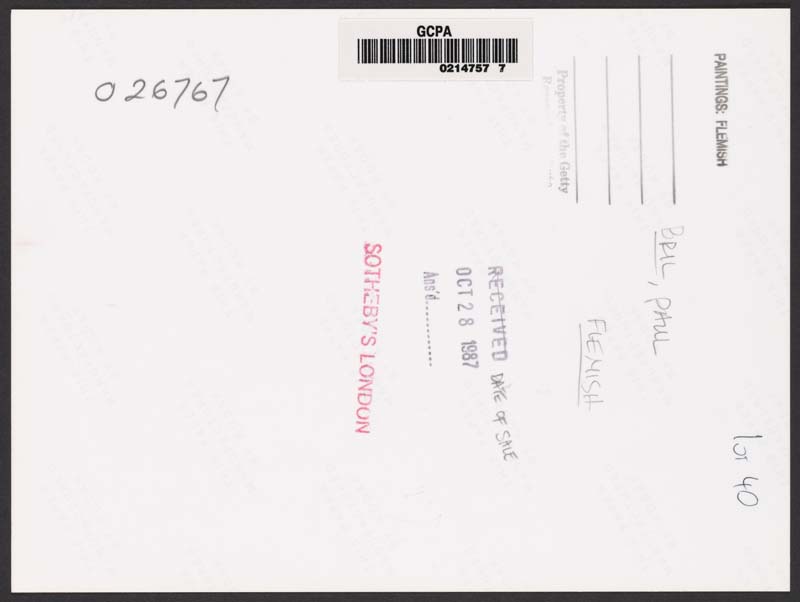 GCPA
0214757 7
026767
PAINTINGS: FLEMISH
Property of the Getty
BRIL, PAUL
FLEMISH
RECEIVED DATE OF SALE
OCT 28 1987
Ans'd............
SOTHEBY'S LONDON
lot 40